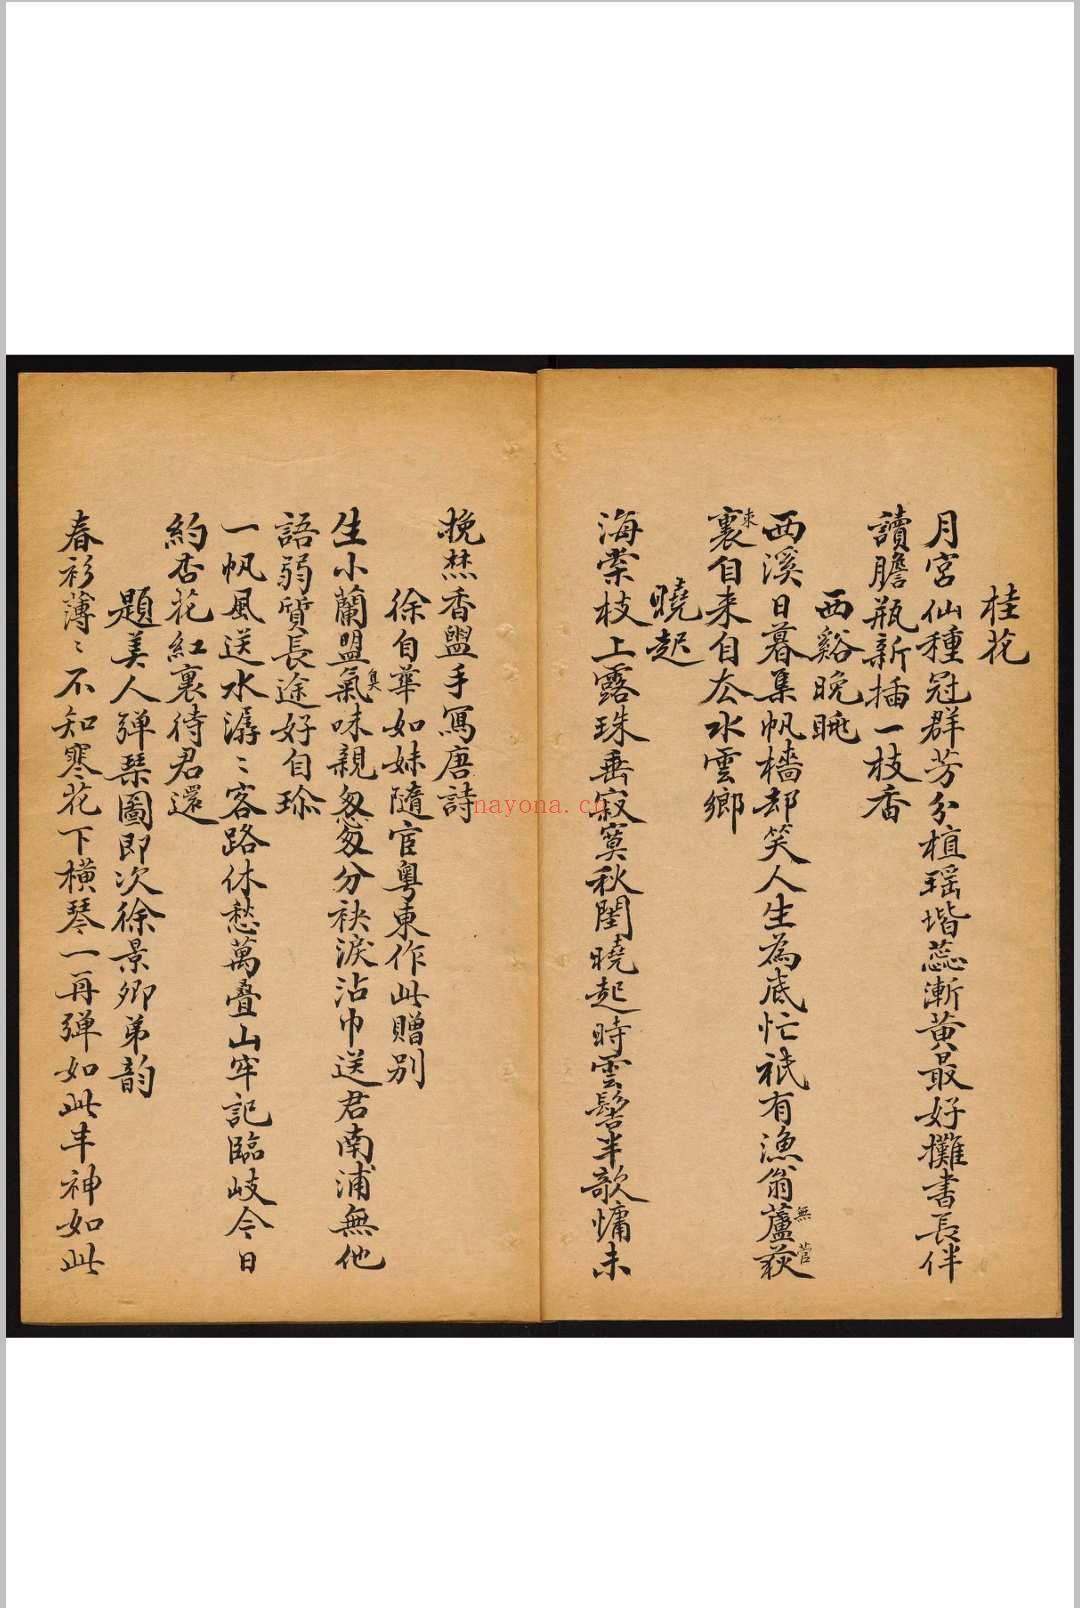 桂花
月宮仙種冠群芳分植瑶堦蕊漸黄最好攤書長伴
讀膽瓶新插一枝香
西谿晚眺
西溪日暮集帆檣却笑人生為底忙祇有漁翁蘆荻
無
菅
裏自来自去水雲鄉
来
曉起
海棠枝上露珠垂寂寞秋閨曉起時雲髻半欹慵未
挽焚香盥手寫唐詩
徐自華如妹隨宦粤東作此贈别
生小蘭盟氣味親怱怱分袂淚沾巾送君南浦無他
臭
語弱質長途好自珎
一帆風送水潺〻客路休愁萬疊山牢記臨岐今日
約杏花紅裏待君還
題美人弹琹圖即次徐景卿弟韵
春衫薄〻不知寒花下横琴一再弹如此丰神如此
nayona.cn